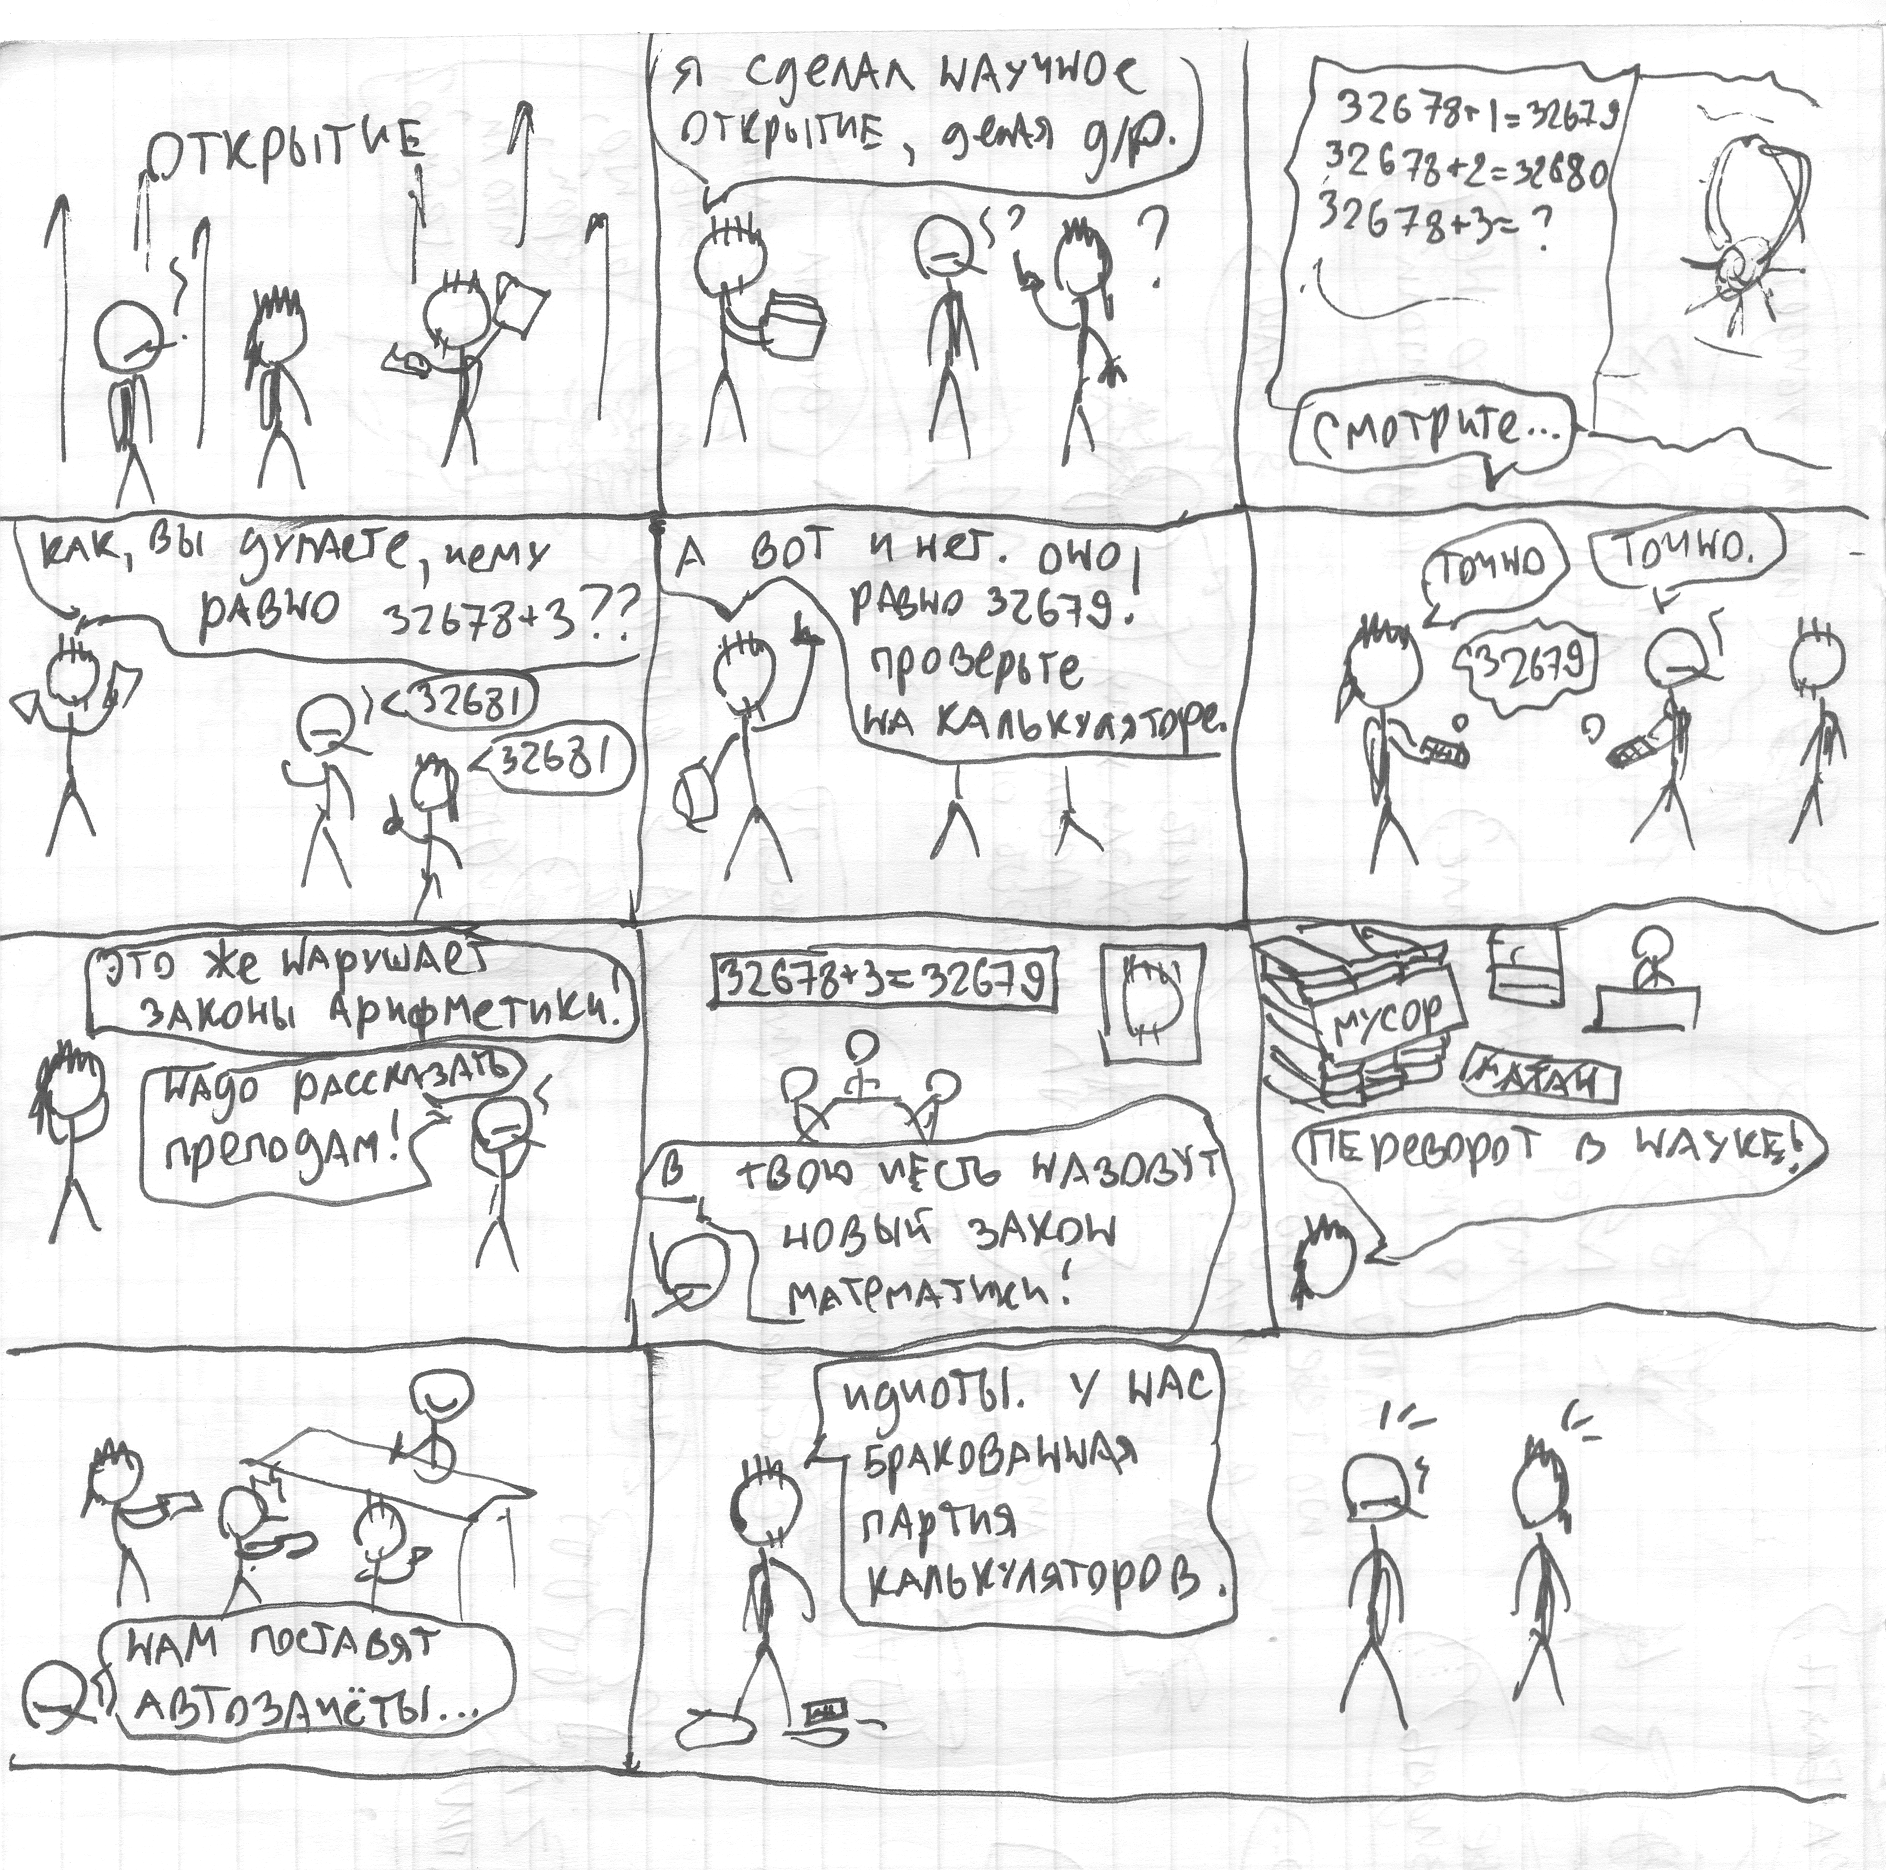 ОТКРЫТИЕ
Я СДЕЛАЛ НАУЧНОЕ
ОТКРЫТИЕ, ДЕЛАЯ Д/Р.
?
?
32678+1=32679
32678+2=32680
32678+3=?
СМОТРИТЕ...
КАК, ВЫ ДУМАЕТЕ, ЧЕМУ
РАВНО 32678+3??
32681
32681
А ВОТ И НЕТ. ОНО
РАВНО 32679!
ПРОВЕРЬТЕ
НА КАЛЬКУЛЯТОРЕ.
ТОЧНО
ТОЧНО.
32679
ЭТО ЖЕ НАРУШАЕТ
ЗАКОНЫ АРИФМЕТИКИ!
НАДО РАССКАЗАТЬ
ПРЕПОДАМ!
32678+3=32679
В ТВОЮ ЧЕСТЬ НАЗОВУТ
НОВЫЙ ЗАКОН
МАТЕМАТИКИ!
МУСОР
МАТАН
ПЕРЕВОРОТ В НАУКЕ!
НАМ ПОСТАВЯТ
АВТОЗАЧЁТЫ...
ИДИОТЫ. У НАС
БРАКОВАННАЯ
ПАРТИЯ
КАЛЬКУЛЯТОРОВ.